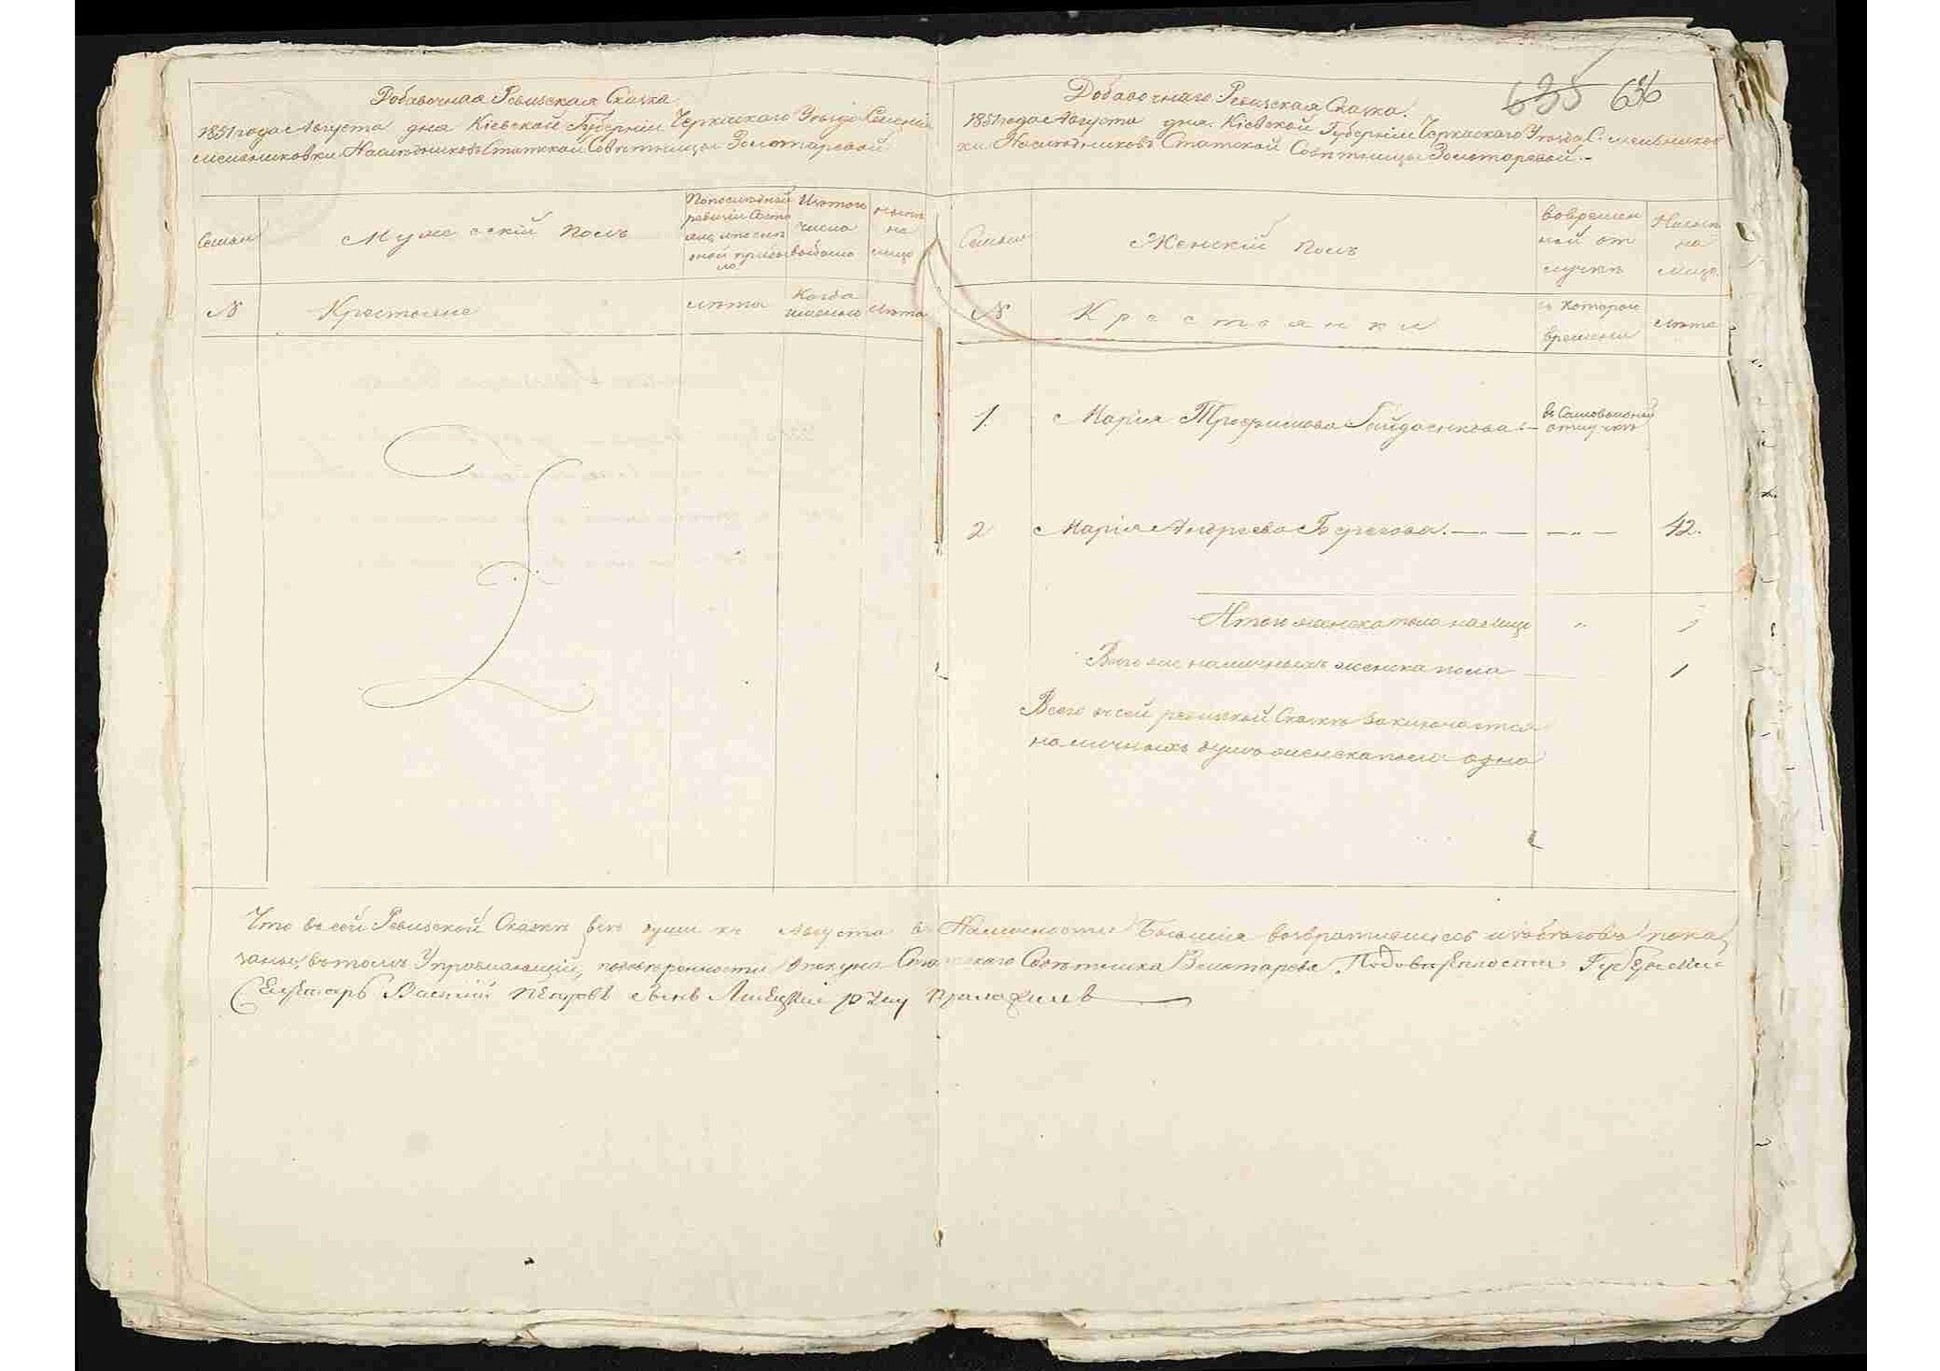 635 636
Добавочная Ревизская Сказка
1851 года Августа дня Кіевской Губерніи Черкаскаго Уѣзда Селенія
Наслѣдниковъ Статской Совѣтницы Золотаревой
Семьи
Мужескій полъ
По послѣдней
ревизіи состо
яло и послѣ
оной прибы
ло
Изъ того
числа
выбыло
Нынѣ
на
лицо
№
Крестьяне
лѣта
Когда
именно
лѣта
Добавочнаго Ревизская Сказка.
1851 года Августа дня. Кіевской Губерніи Черкаскаго Уѣзда С. Мельников
ки Наслѣдниковъ Статской Совѣтницы Золотаревой.-
Семьи
Женскій полъ
Во времен
ной от
лучкѣ
Нынѣ
на
лицо
№
Крестьянки
съ котораго
времени
лѣта
1. Марія Трофимова Гайдаенкова. въ Самовольной
отлучкѣ
2 Марія Андреева Бурегова. — „ — — „ — 42.
Итого женска пола на лицо „ 1
Всего же наличныхъ женска пола 1
Всего въ сей ревизской Сказкѣ заключается
наличныхъ душъ женска пола одна
Что въ сей Ревизской Сказкѣ всѣ души къ Августа въ Наличности Бывшія возвратившіеся изъ бѣговъ пока
заны, въ томъ Управляющій, по довѣренности Опекуна Статскаго Совѣтника Золотарева, Губернскій
Секретарь Василій Петровъ сынъ руку приложилъ